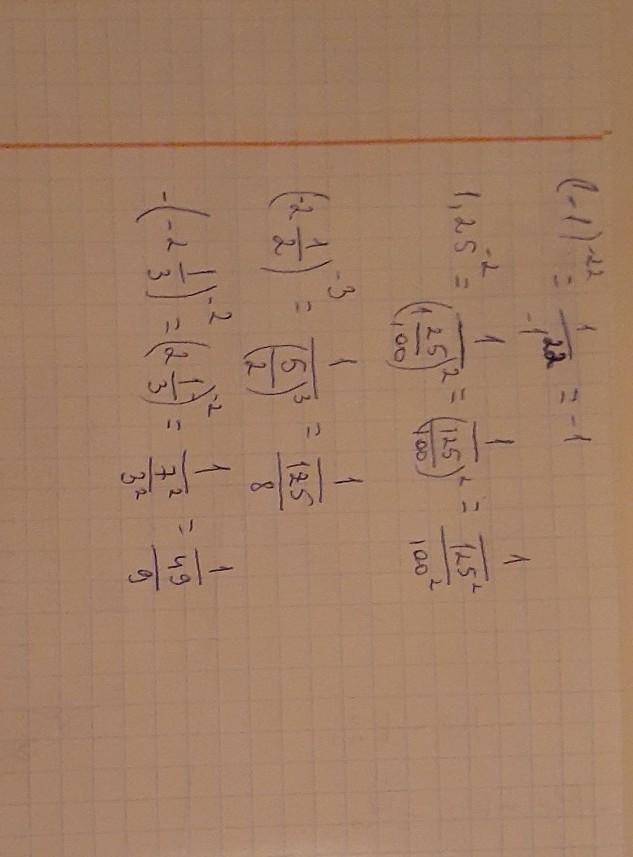 (-1)^-22 = 1/-1^22 = -1
1,25^-2 = 1/(1 25/100)^2 = 1/(125/100)^2 = 1/(125^2/100^2)
(2 1/2)^-3 = 1/(5/2)^3 = 1/(125/8)
-(-2 1/3)^-2 = (2 1/3)^-2 = 1/(7^2/3^2) = 1/(49/9)